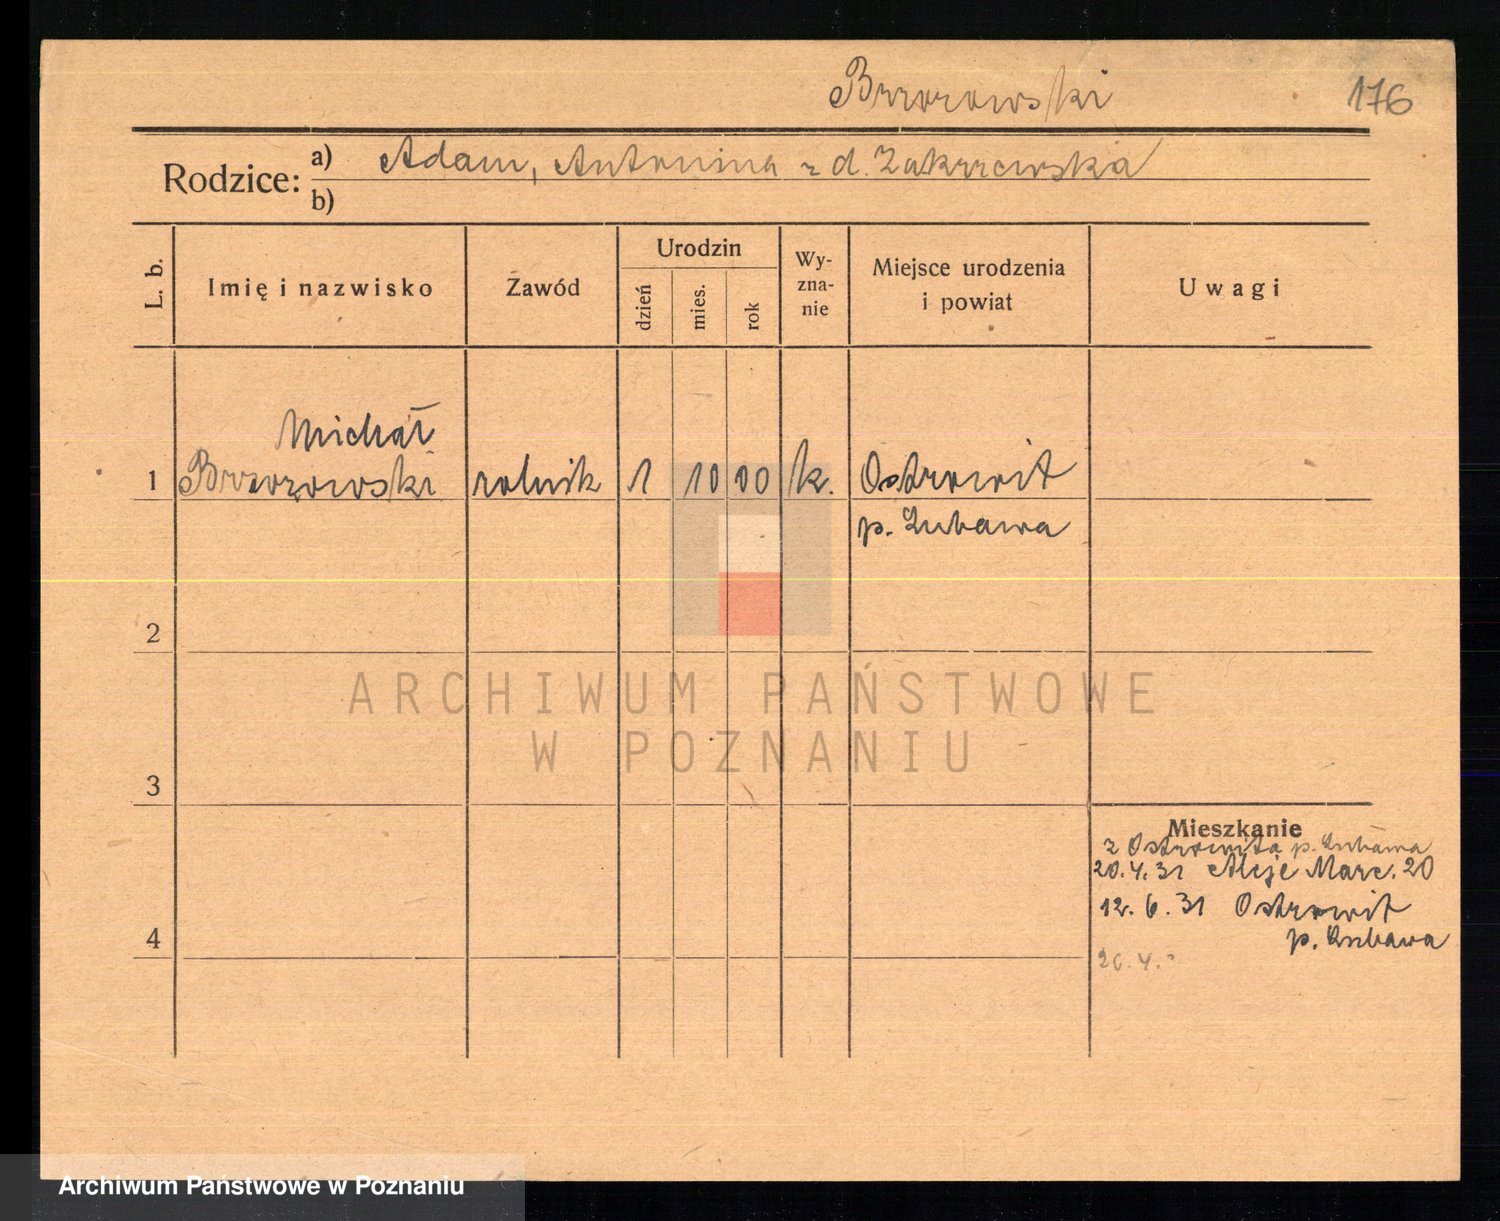 Brzozowski
176
Rodzice:
a) Adam, Antonina z d. Zakrzewska
b)
L. b.
Imię i nazwisko
Zawód
Urodzin
dzień
mies.
rok
Wy-
zna-
nie
Miejsce urodzenia
i powiat
Uwagi
Michał
1 Brzozowski rolnik 1 10 00 k. Ostrowit
p. Lubawa
2
ARCHIWUM PAŃSTWOWE
W POZNANIU
3
Mieszkanie
z Ostrowita p. Lubawa
20.4.31 Aleje Marc. 20
12.6.31 Ostrowit
4
p. Lubawa
26.4.
Archiwum Państwowe w Poznaniu